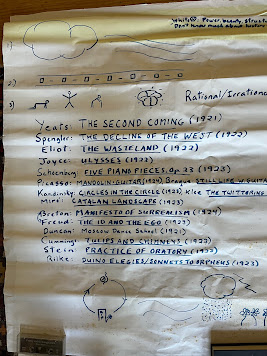 White: Power, beauty, structu
"Don't know much about history
1)
2)
3)
Rational/Irrationa
Yeats: THE SECOND COMING (1921)
Spengler: THE DECLINE OF THE WEST (1922)
Eliot: THE WASTELAND (1922)
Joyce: ULYSSES (1922)
Schoenberg: FIVE PIANO PIECES, Op. 23 (1923)
Picasso: MANDOLIN + GUITAR (1924), Braque: STILL LIFE W. GUITA
Kandinsky: CIRCLES IN THE CIRCLE (1921) Klee THE TWITTERING
Miró: CATALAN LANDSCAPE (1923)
Breton: MANIFESTO OF SURREALISM (1924)
Freud: THE ID AND THE EGO (1923)
Duncan: Moscow Dance School (1921)
Cummings: TULIPS AND CHIMNEYS (1923)
Stein: PRACTICE OF ORATORY (1923)
Rilke: DUINO ELEGIES/SONNETS TO ORPHEUS (1923)